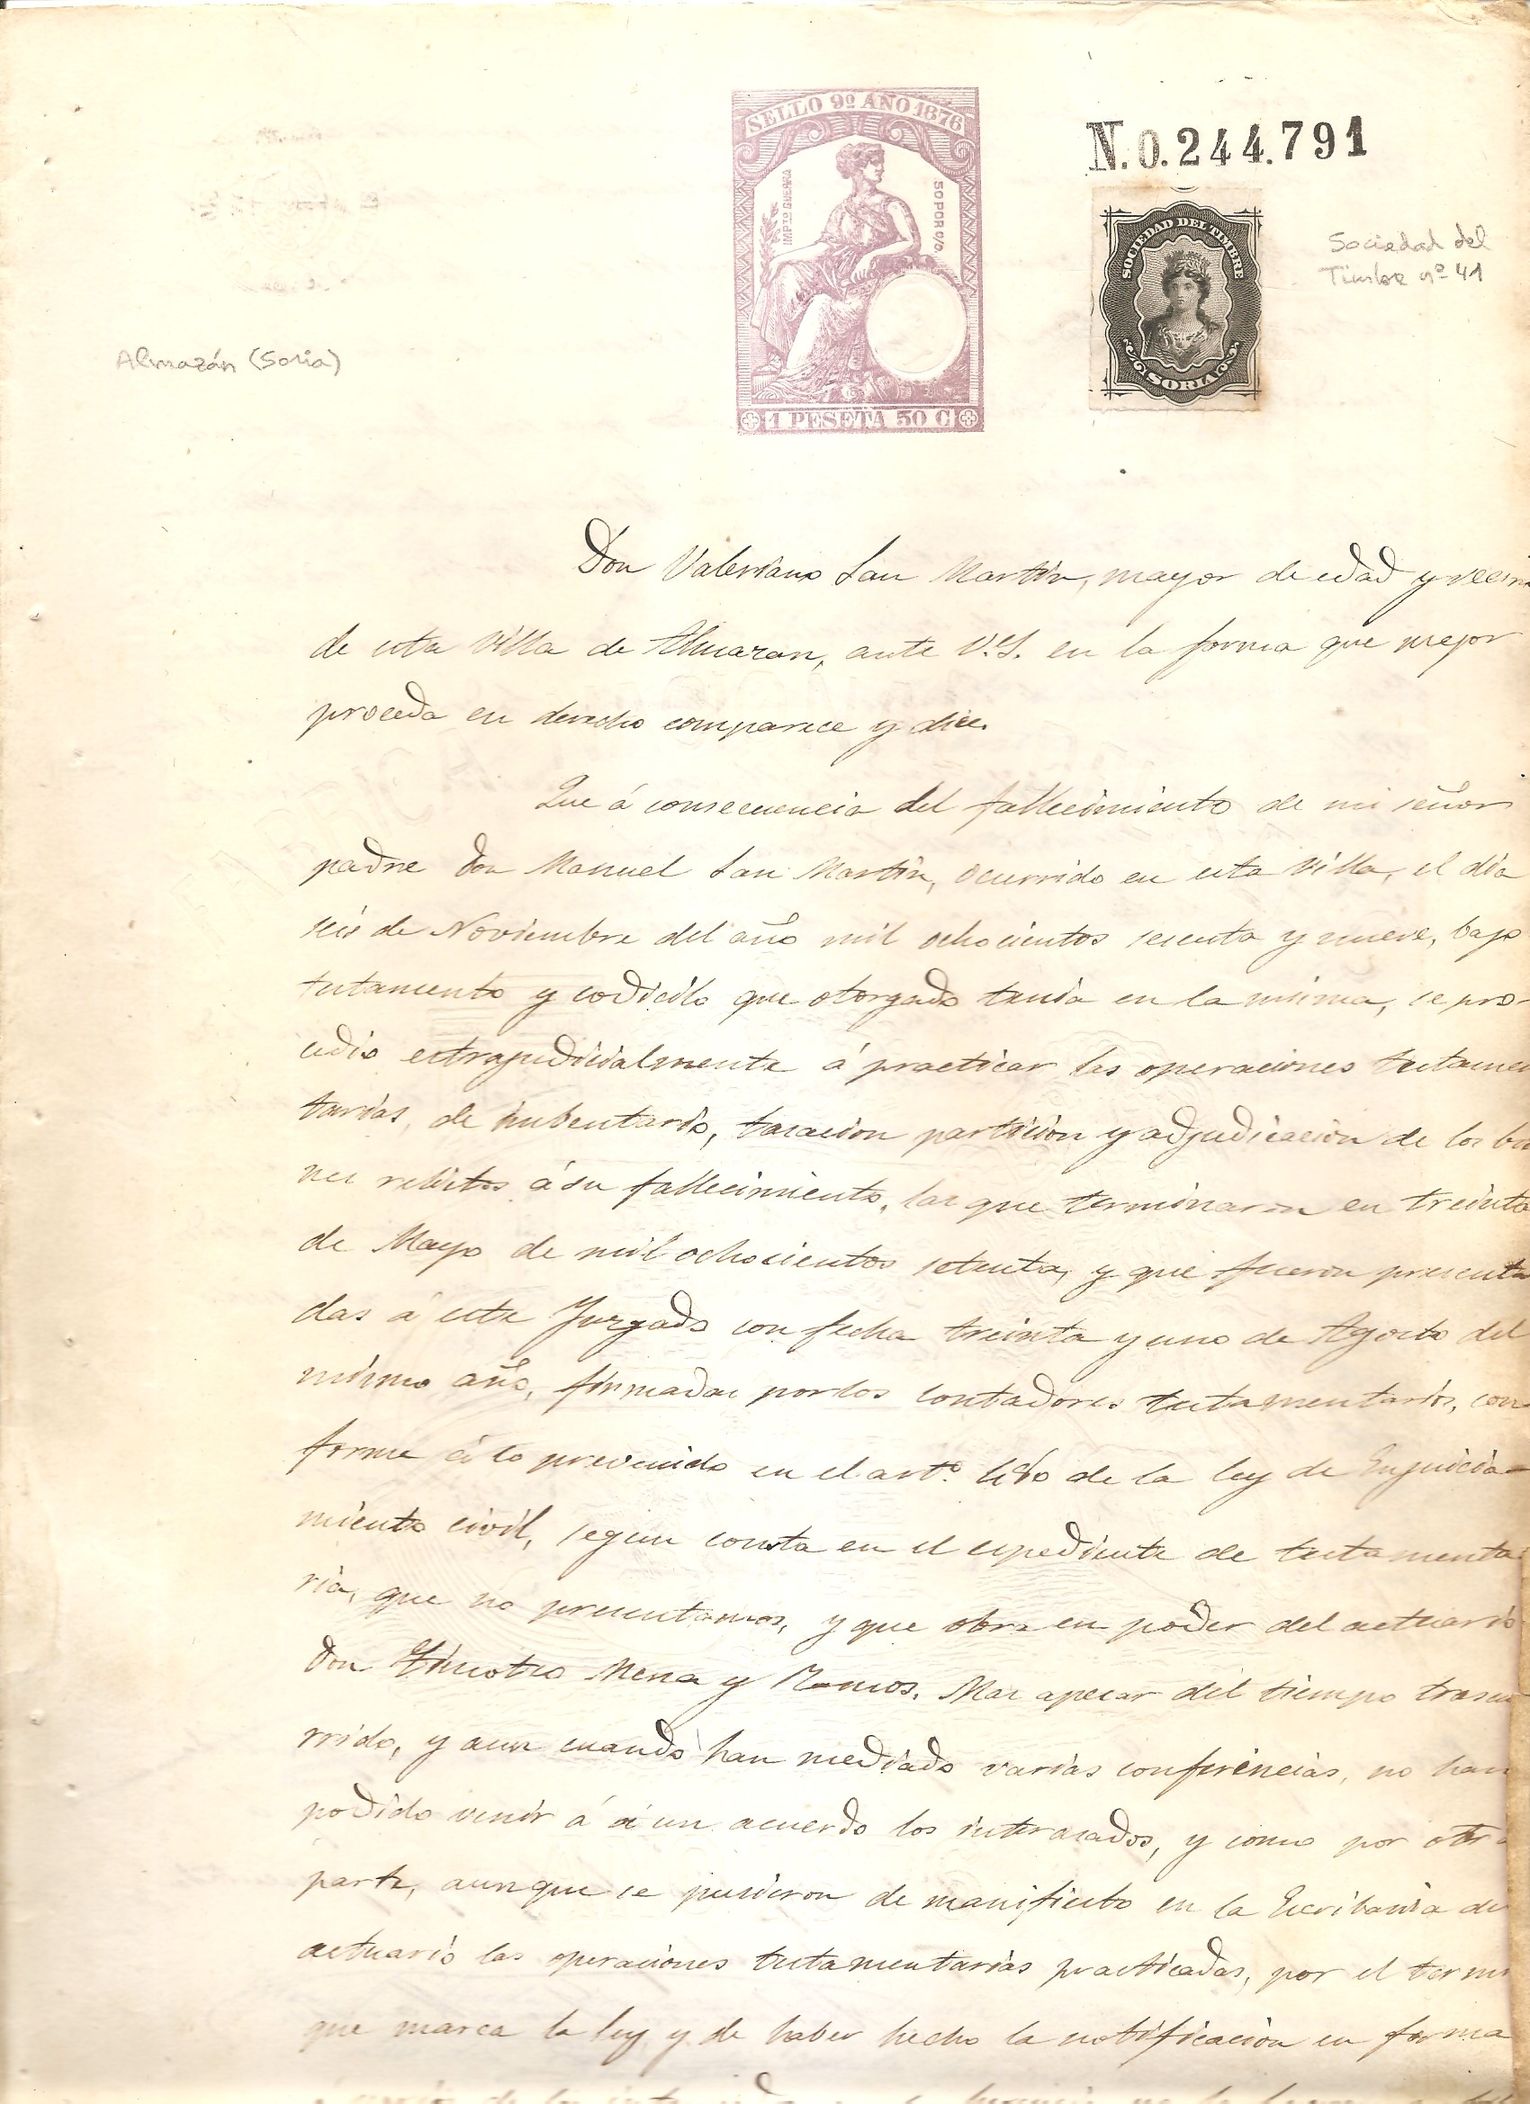 SELLO 9º AÑO 1876
IMPTO GUERRA
50 POR 0/0
1 PESETA 50 C
N. 0.244.791
SOCIEDAD DEL TIMBRE
SORIA
Sociedad del
Timbre nº 41
Almazán (Soria)
Don Valeriano San Martin, mayor de edad y vecino
de esta Villa de Almazan, ante V.S. en la forma que mejor
proceda en derecho comparece y dice.
Que á consecuencia del fallecimiento de mi señor
padre don Manuel San Martin, ocurrido en esta Villa, el dia
seis de Noviembre del año mil ochocientos sesenta y nueve, bajo
testamento y codicilo que otorgado tenia en la misma, se pro-
cedio estrajudicialmente á practicar las operaciones testamen
tarias, de imbentario, tasacion particion y adjudicacion de los bie
nes relictos á su fallecimiento, las que terminaron en treinta
de Mayo de mil ochocientos setenta, y que fueron presenta
das á este Juzgado con fecha treinta y uno de Agosto del
mismo año, firmadas por los contadores testamentarios, con-
forme á lo prevenido en el artº. 480 de la ley de Enjuicia-
miento civil, segun consta en el espediente de testamenta
ria, que no presentamos, y que obra en poder del actuario
don Timoteo Mena y Ramos. Mas apesar del tiempo trascu
rrido, y aun cuando han mediado varias conferencias, no han
podido venir á á un acuerdo los interasados, y como por otra
parte, aunque se pusieron de manifiesto en la Escribania del
actuario las operaciones testamentarias practicadas, por el termi
que marca la ley y de haber hecho la notificacion en forma